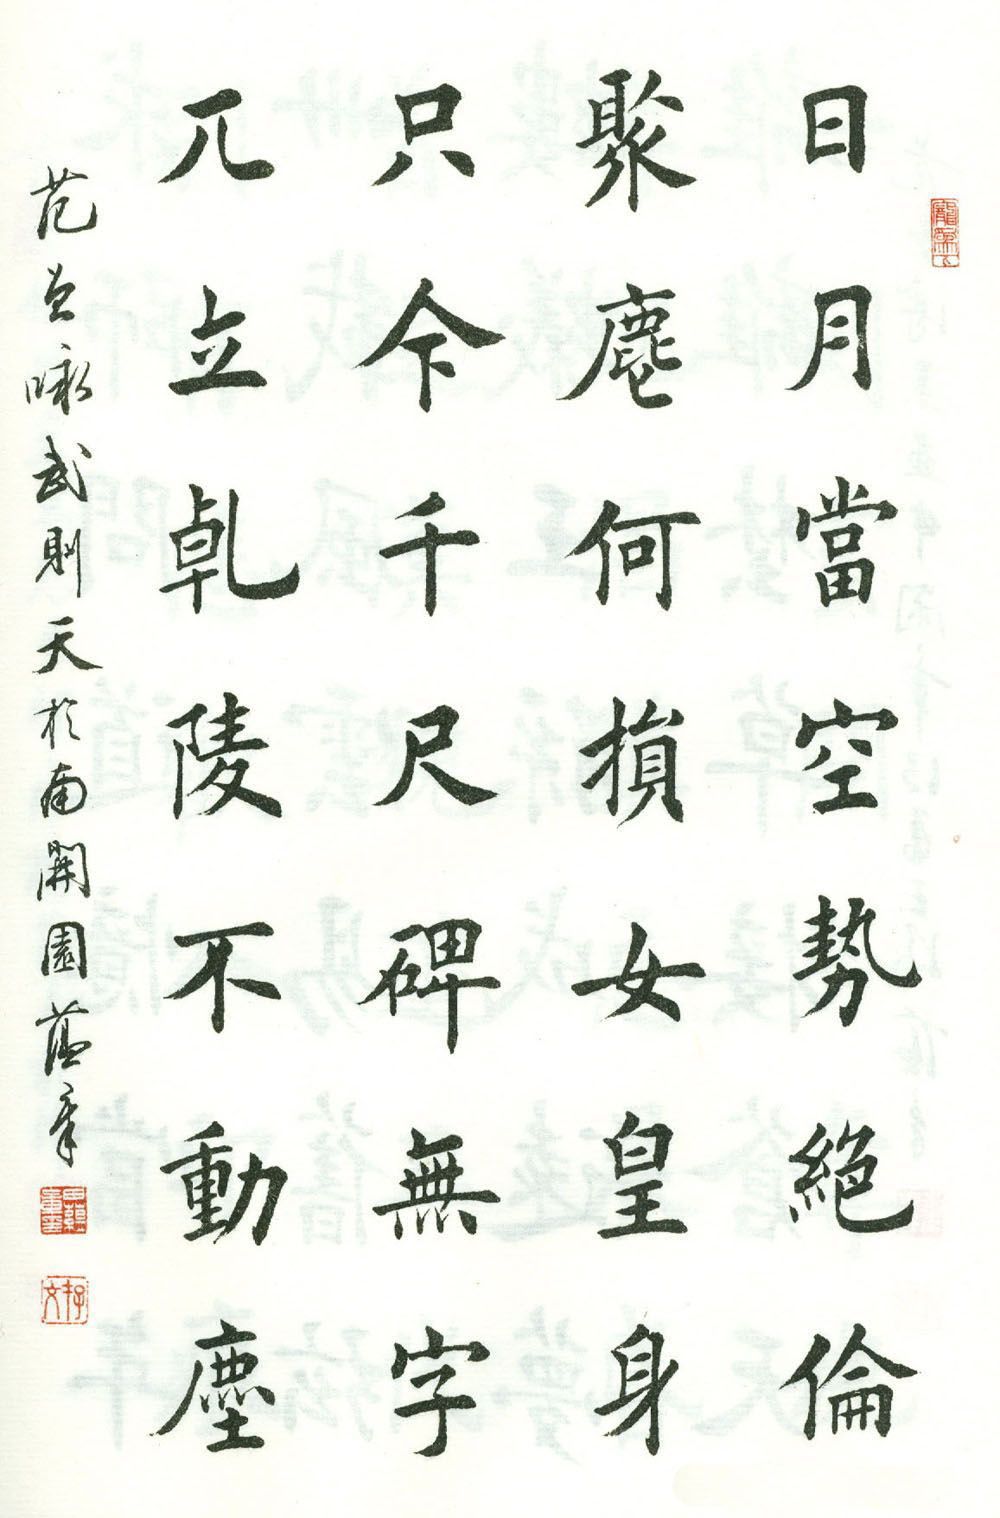 日月當空勢絕倫
聚麀何損女皇身
只今千尺碑無字
兀立乹陵不動塵
范曾詠武則天於南開園蘊章